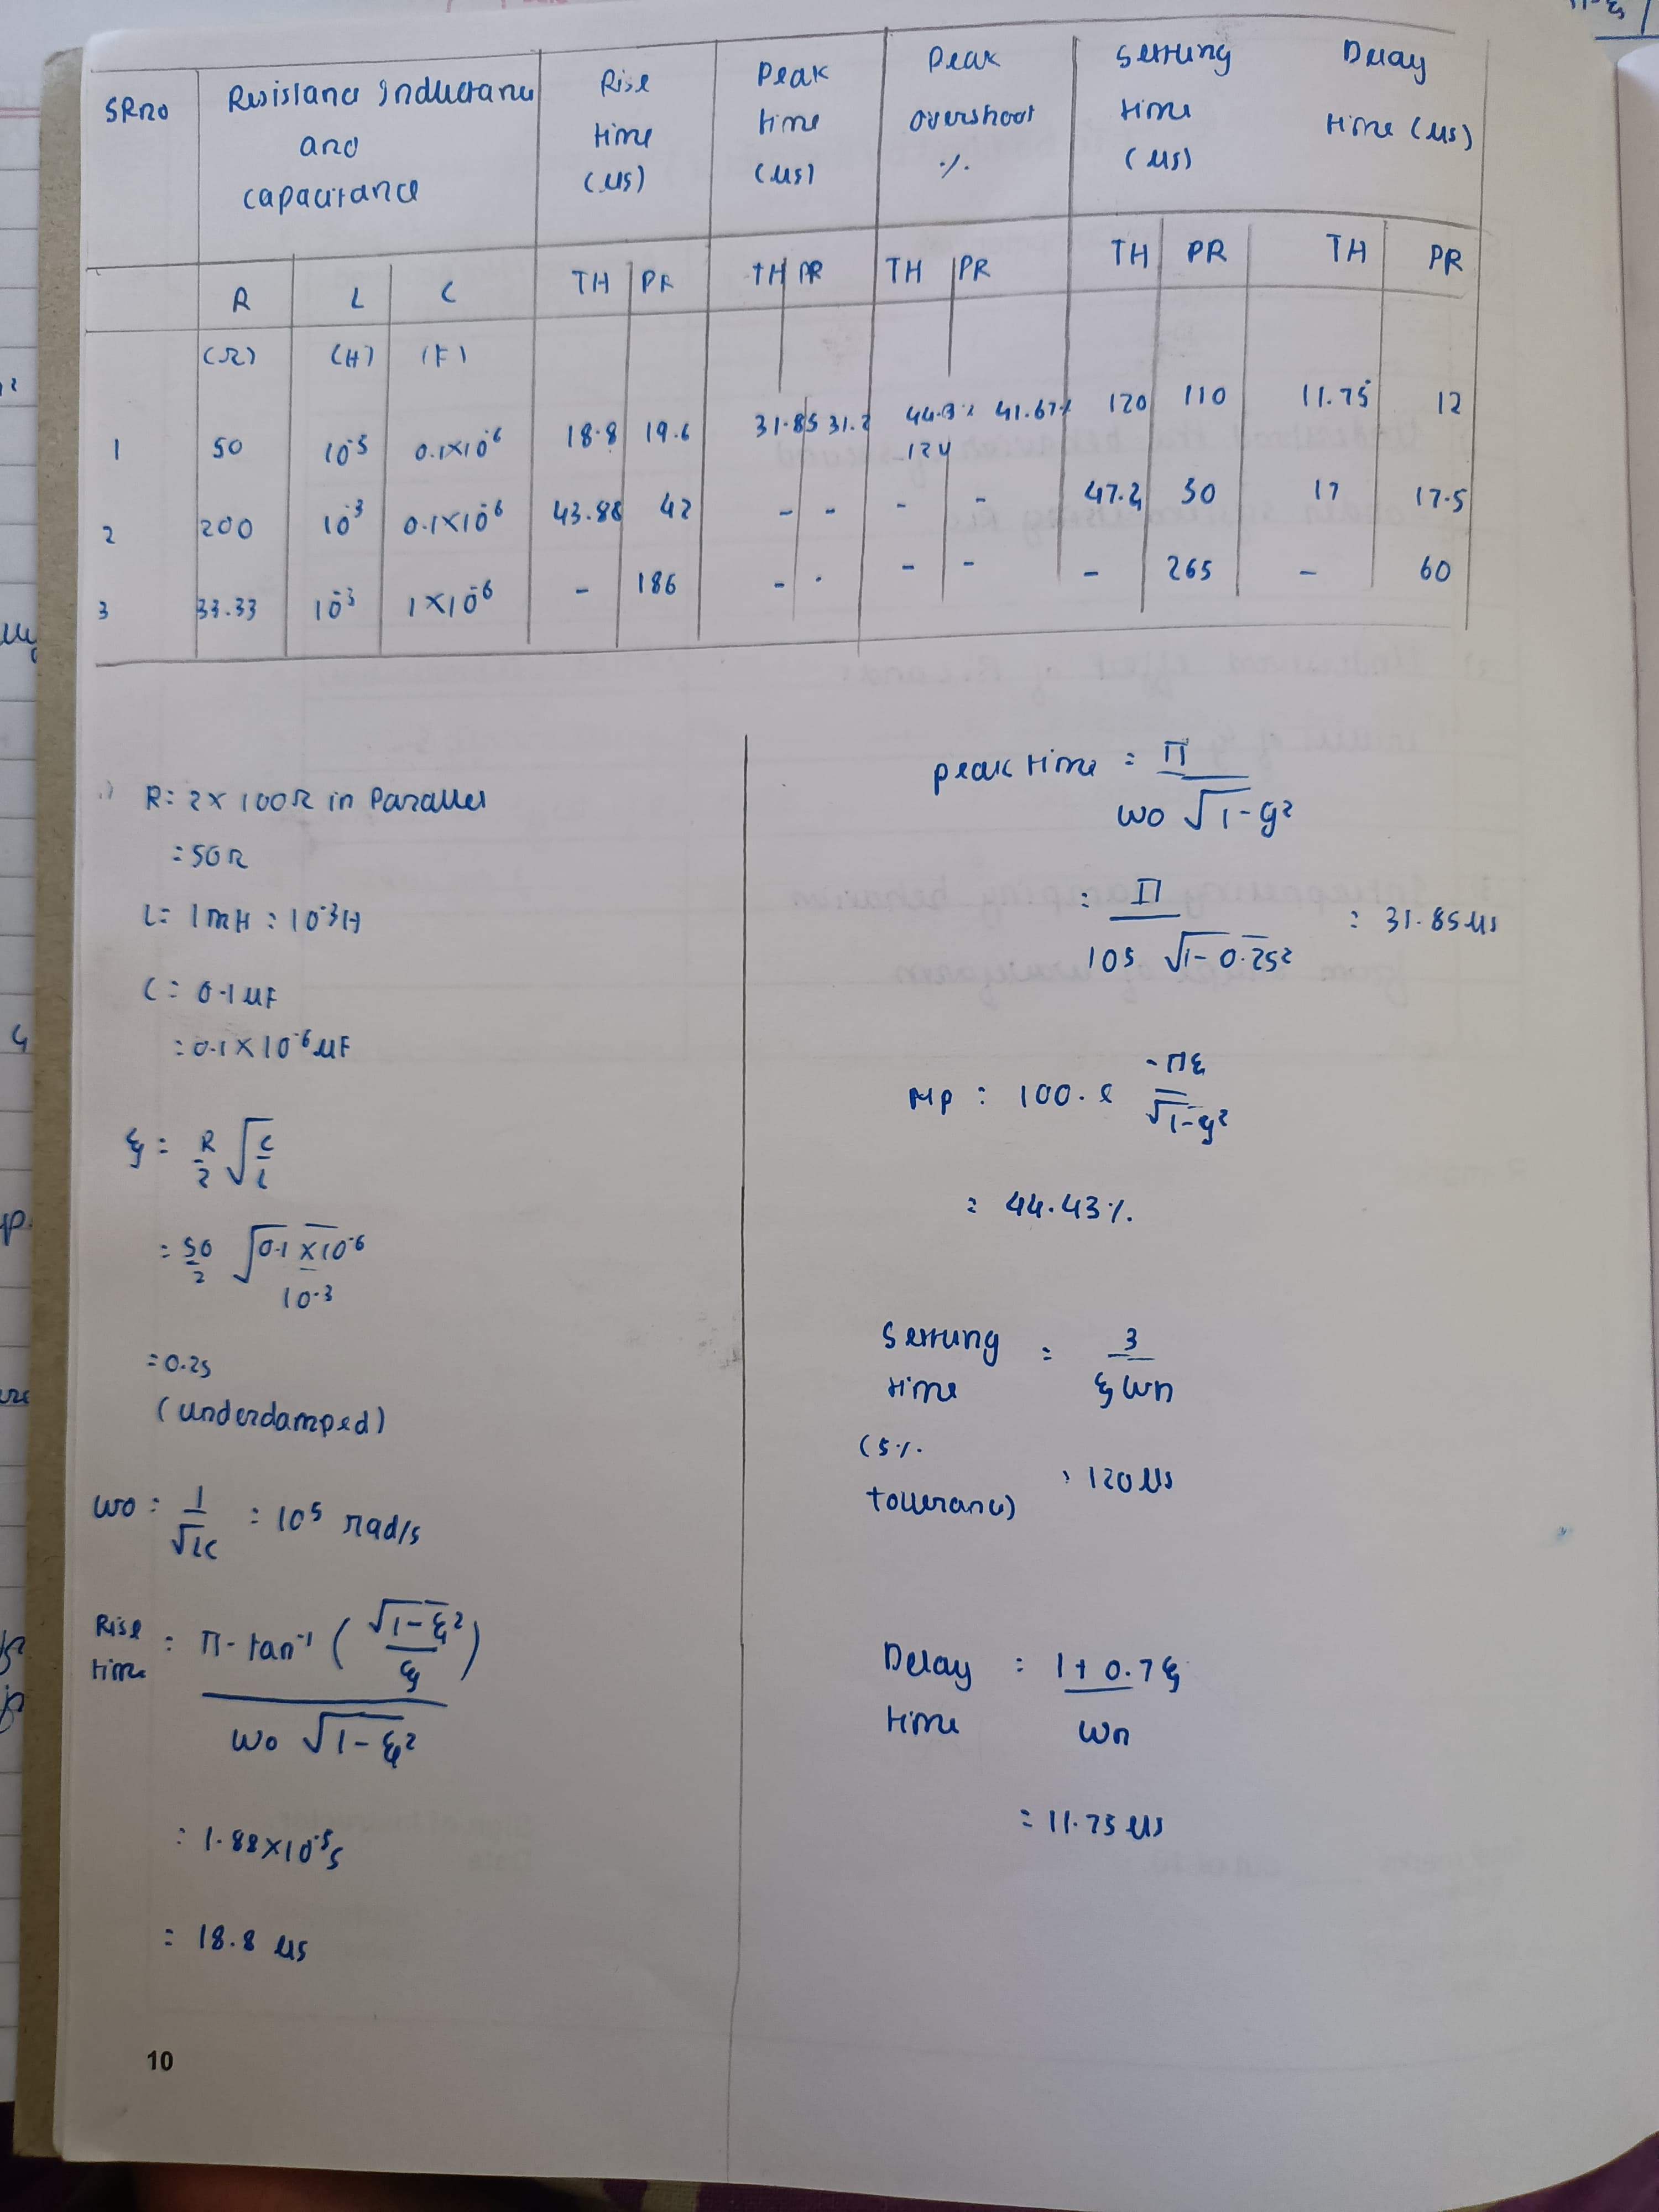 SR no | Resistance Inductance and capacitance | Rise time (μs) | Peak time (μs) | Peak overshoot % | Settling time (μs) | Delay time (μs)
R | L | C | TH | PR | TH | PR | TH | PR | TH | PR | TH | PR
(Ω) | (H) | (F)
1 | 50 | 10⁻³ | 0.1×10⁻⁶ | 18.8 | 19.6 | 31.85 | 31.2 | 44.3% | 41.67% | 120 | 110 | 11.75 | 12
2 | 200 | 10⁻³ | 0.1×10⁻⁶ | 43.88 | 42 | - | - | - | - | 47.2 | 50 | 17 | 17.5
3 | 33.33 | 10⁻³ | 1×10⁻⁶ | - | 186 | - | - | - | - | - | 265 | - | 60
1) R = 2×100Ω in Parallel
= 50Ω
L = 1mH = 10⁻³H
C = 0.1μF
= 0.1×10⁻⁶μF
ξ = R/2 √(C/L)
= 50/2 √(0.1×10⁻⁶/10⁻³)
= 0.25
(underdamped)
ω0 = 1/√LC = 10⁵ rad/s
Rise time = π - tan⁻¹(√(1-ξ²)/ξ) / ω0√(1-ξ²)
= 1.88×10⁻⁵s
= 18.8 μs
peak time = π / ω0√(1-ξ²)
= π / 10⁵√(1-0.25²) = 31.85μs
Mp = 100.e^(-πξ/√(1-ξ²))
= 44.43%
Settling time = 3/ξωn
(5% tollerance) = 120μs
Delay time = 1+0.7ξ / ωn
= 11.75μs
10